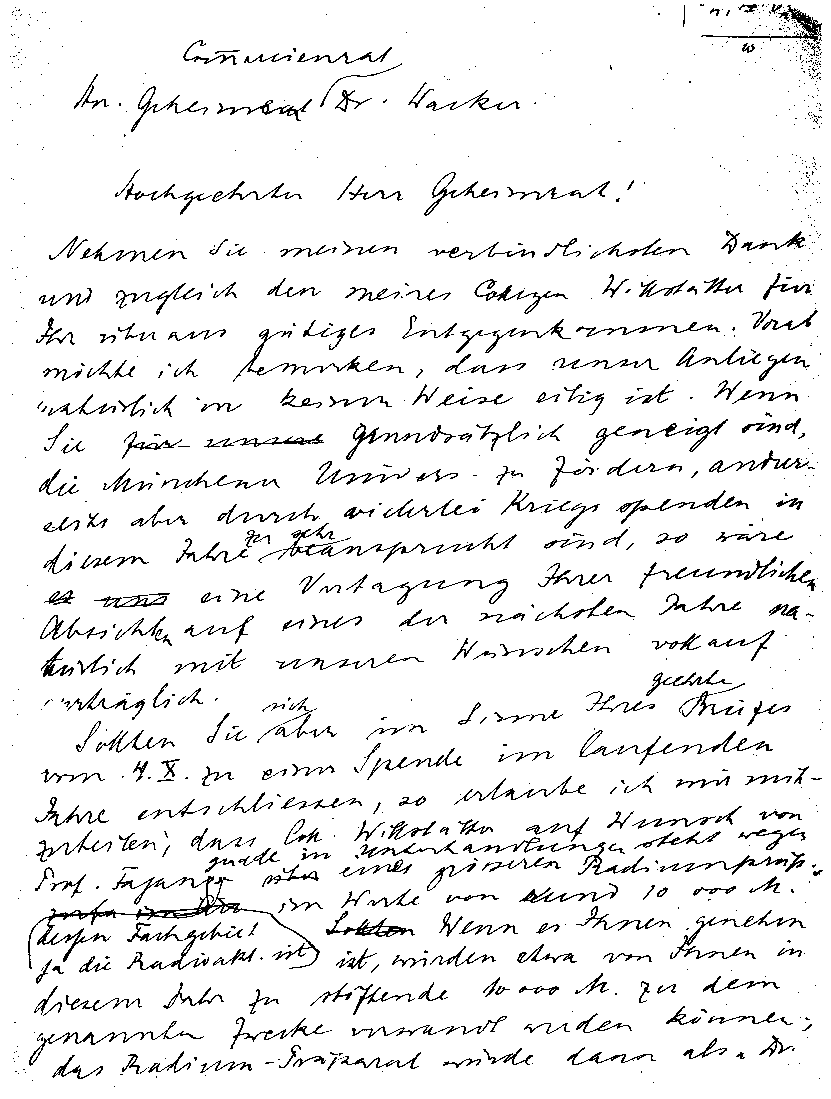 Commercienrat
Hn. Geheimrat Dr. Wacker.
Hochgeehrter Herr Geheimrat!
Nehmen Sie meinen verbindlichsten Dank
und zugleich den meines Collegen Willstätter für
Ihr überaus gütiges Entgegenkommen. Vorab
möchte ich bemerken, dass unser Anliegen
natürlich in keiner Weise eilig ist. Wenn
Sie für unsere grundsätzlich geneigt sind,
die Münchener Univers. zu fördern, ander-
seits aber durch vielerlei Kriegsspenden in
diesem Jahre zu sehr beansprucht sind, so wäre
es uns eine Vertagung Ihrer freundlichen
Absichten auf eines der nächsten Jahre na-
türlich mit unseren Wünschen vollauf
verträglich.
Sollten Sie sich aber im Sinne Ihres geehrten Briefes
vom 4. X. zu einer Spende im laufenden
Jahre entschliessen, so erlaube ich mir mit-
zuteilen, dass Coll. Willstätter auf Wunsch von
Prof. Fajans gerade in Unterhandlungen steht wegen
eines grösseren Radiumpräp.
im Werte von rund 10 000 M.
dessen Fachgebiet
ja die Radioakt. ist
Sollten Wenn es Ihnen genehm
ist, würden etwa von Ihnen in
diesem Jahr zu stiftende 10 000 M. zu dem
genannten Zwecke verwandt werden können;
das Radium-Präparat würde dann als „Dr.